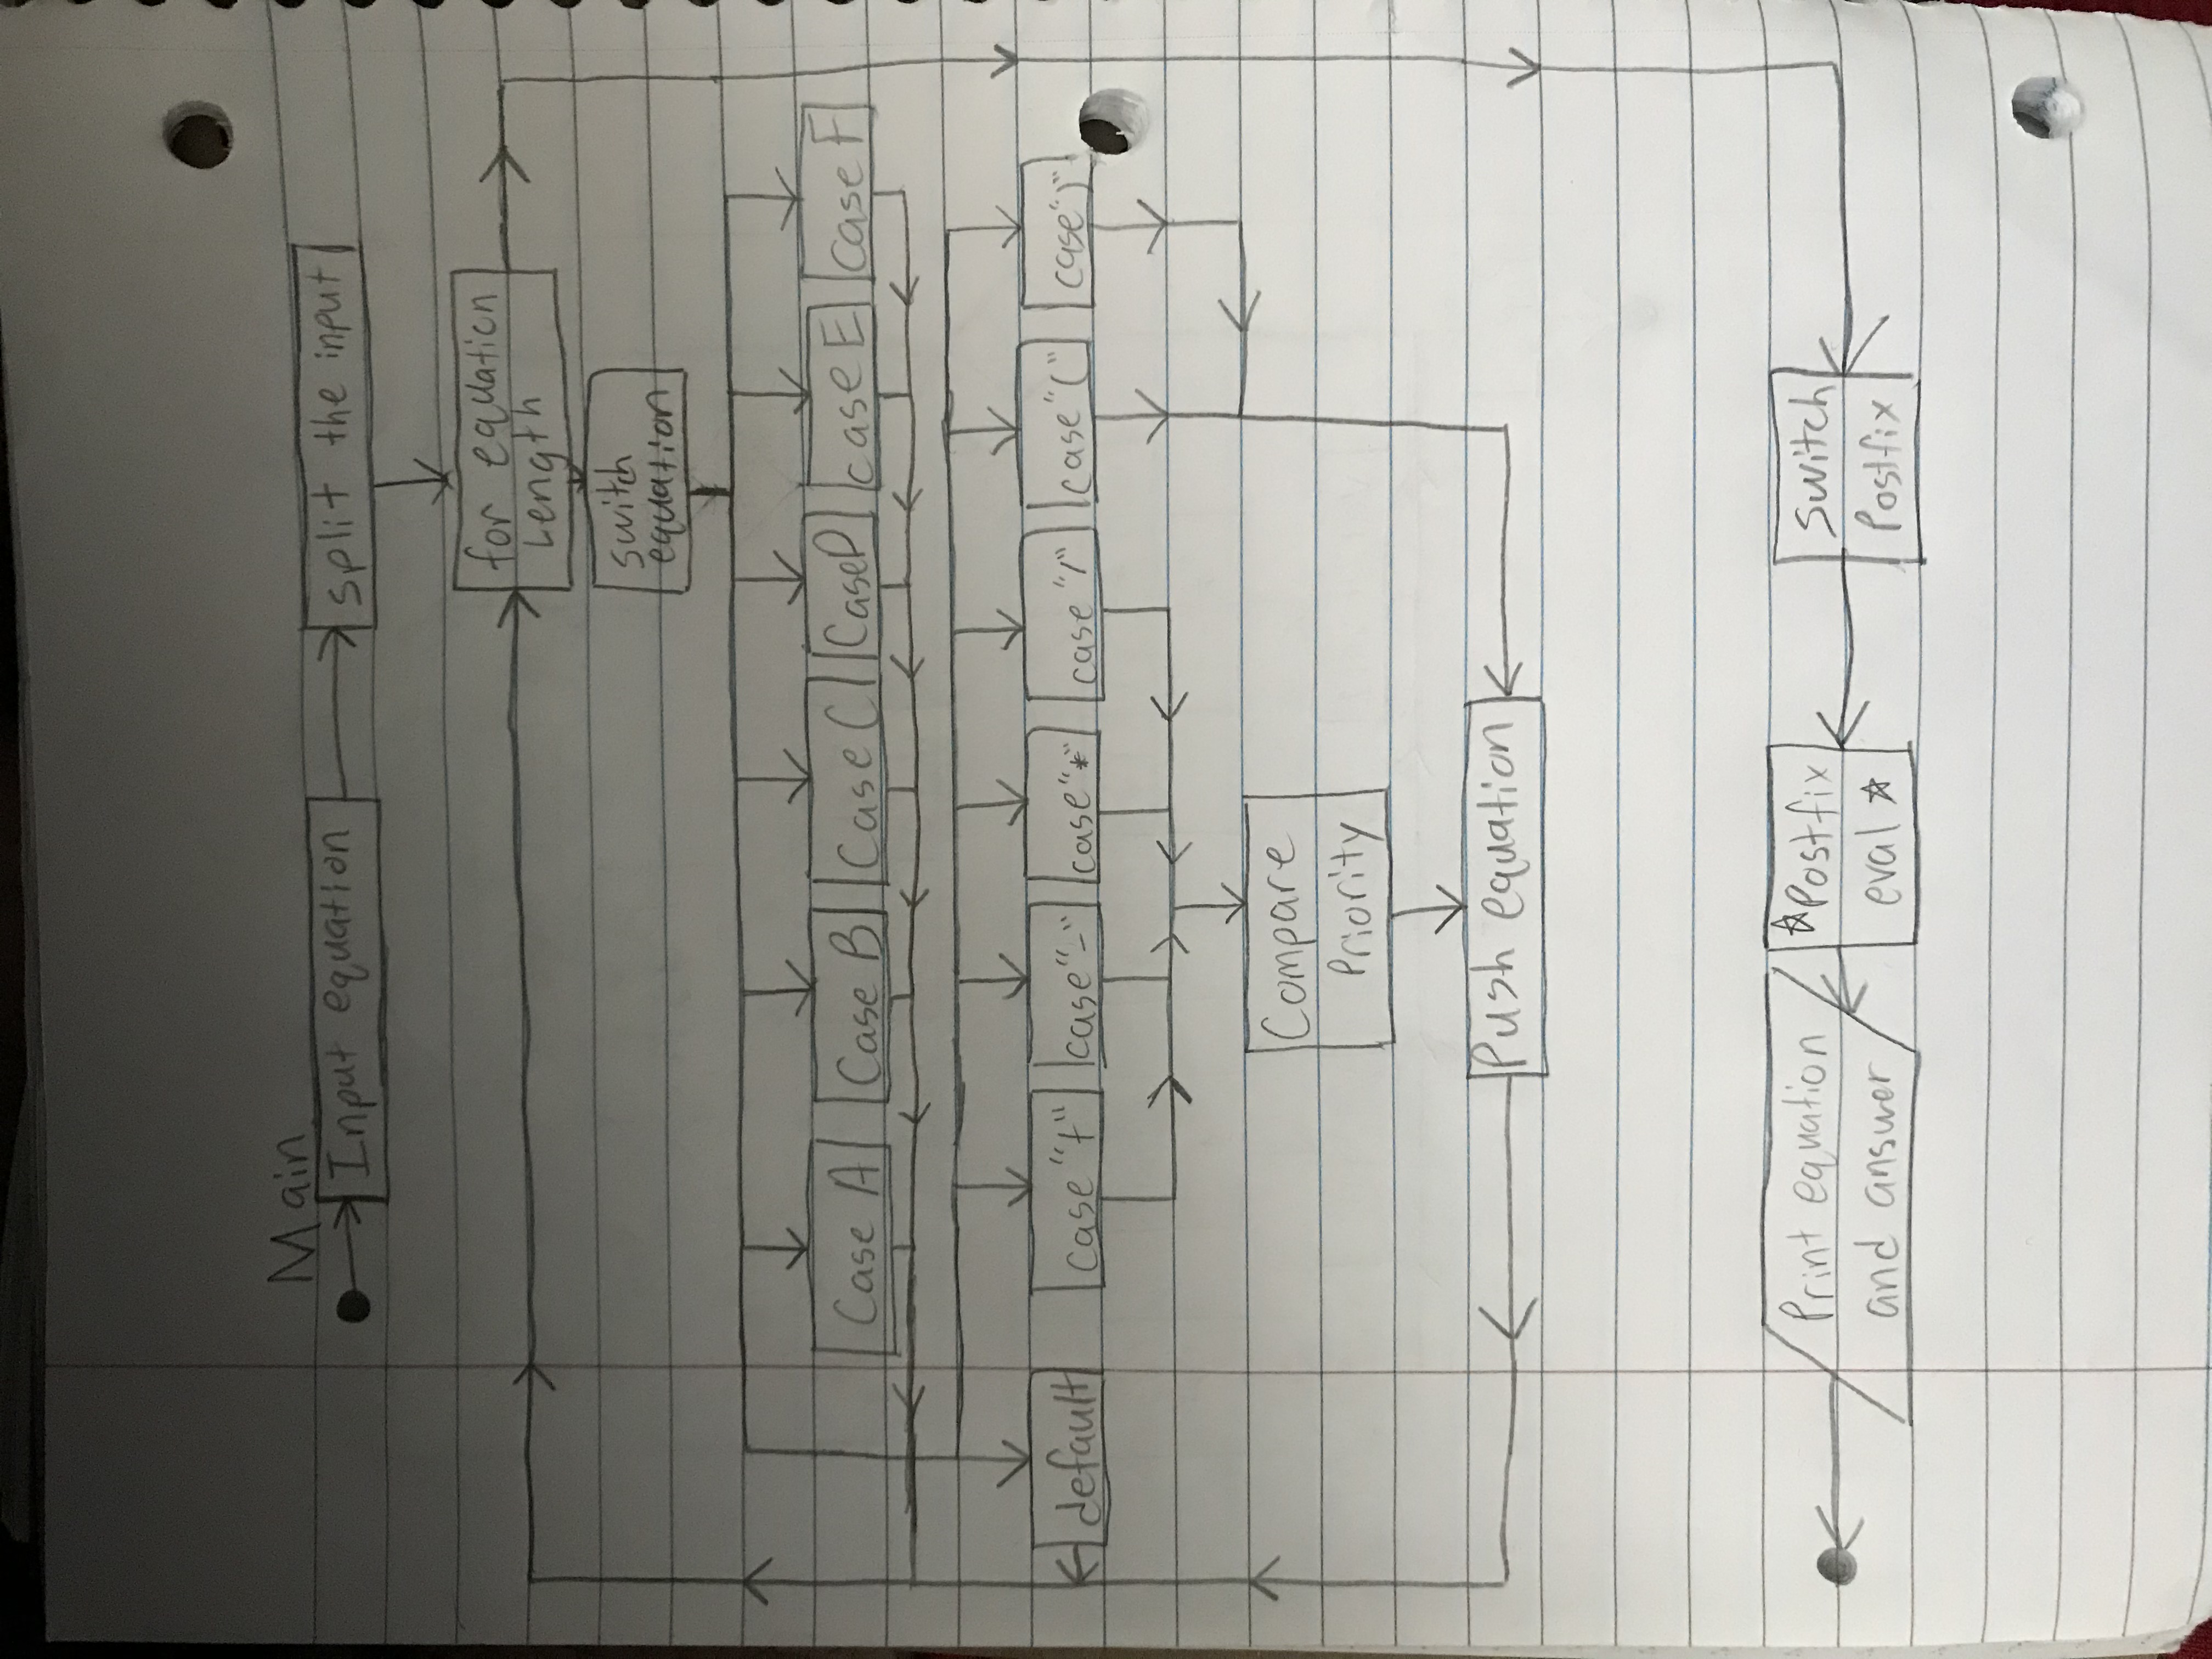 Main
Input equation
split the input
for equation
Length
switch
equation
Case A
Case B
Case C
Case D
case E
case F
default
case "+"
case "-"
case "*"
case "/"
case "("
case ")"
Compare
Priority
Push equation
Print equation
and answer
☆Postfix
eval ☆
Switch
Postfix